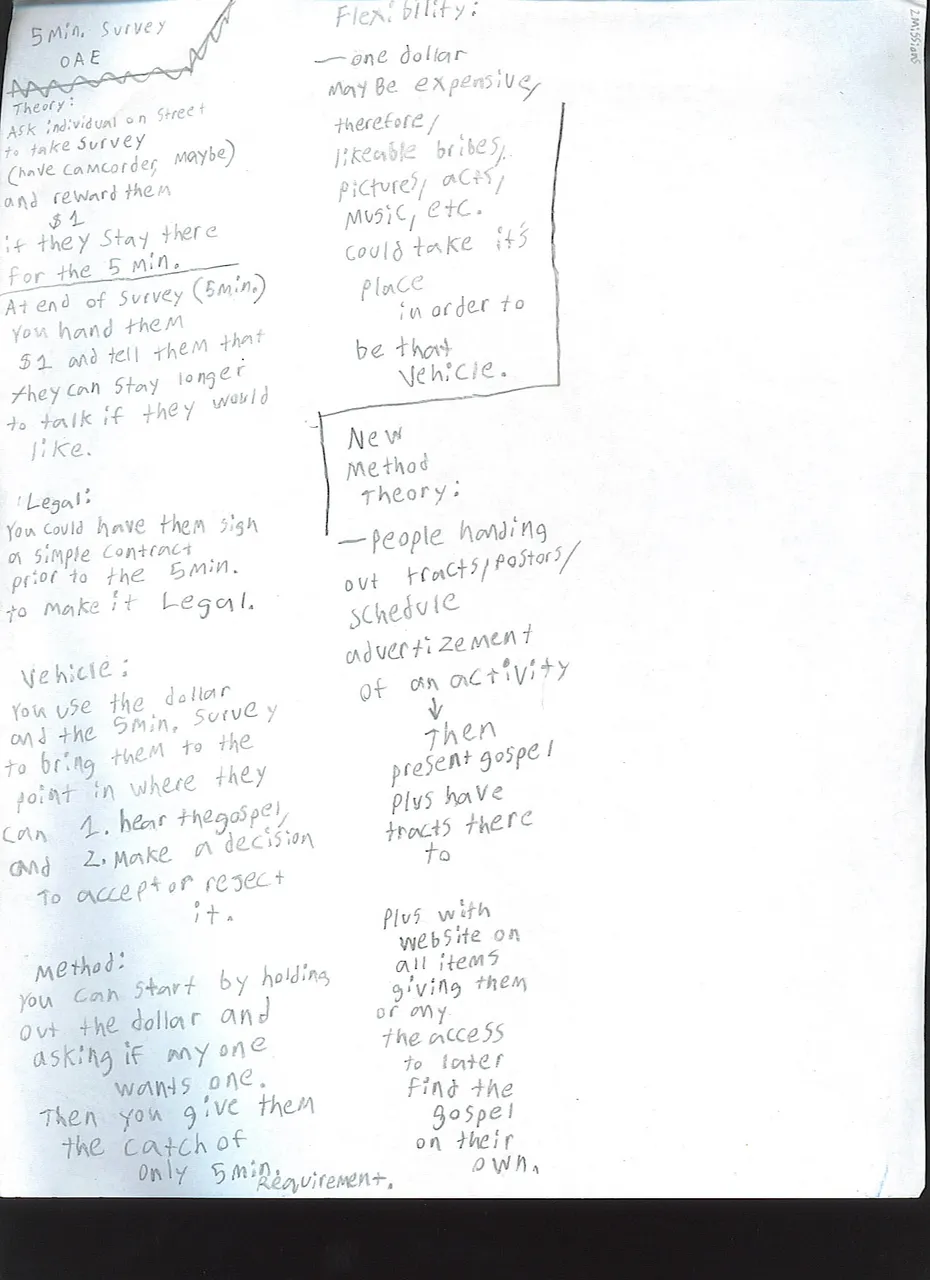 5 Min. Survey
OAE
Theory:
Ask individual on Street
to take Survey
(have camcorder, maybe)
and reward them
$1
if they Stay there
for the 5 Min.
At end of Survey (5min.)
You hand them
$1 and tell them that
they can Stay longer
to talk if they would
like.
Legal:
You could have them sign
a simple contract
prior to the 5min.
to make it Legal.
Vehicle:
You use the dollar
and the 5min. Survey
to bring them to the
point in where they
can 1. hear the gospel,
and 2. Make a decision
To accept or reject
it.
Method:
You can start by holding
out the dollar and
asking if any one
wants one.
Then you give them
the catch of
only 5 min.
Requirement.
Flexibility:
—one dollar
may Be expensive,
therefore,
likeable bribes,
pictures, acts,
Music, etc.
could take it's
place
in order to
be that
Vehicle.
New
Method
Theory:
—people handing
out tracts/postors/
schedule
advertizement
of an activity
↓
Then
present gospel
plus have
tracts there
to
plus with
website on
all items
giving them
or any
the access
to later
find the
gospel
on their
own.
2missions